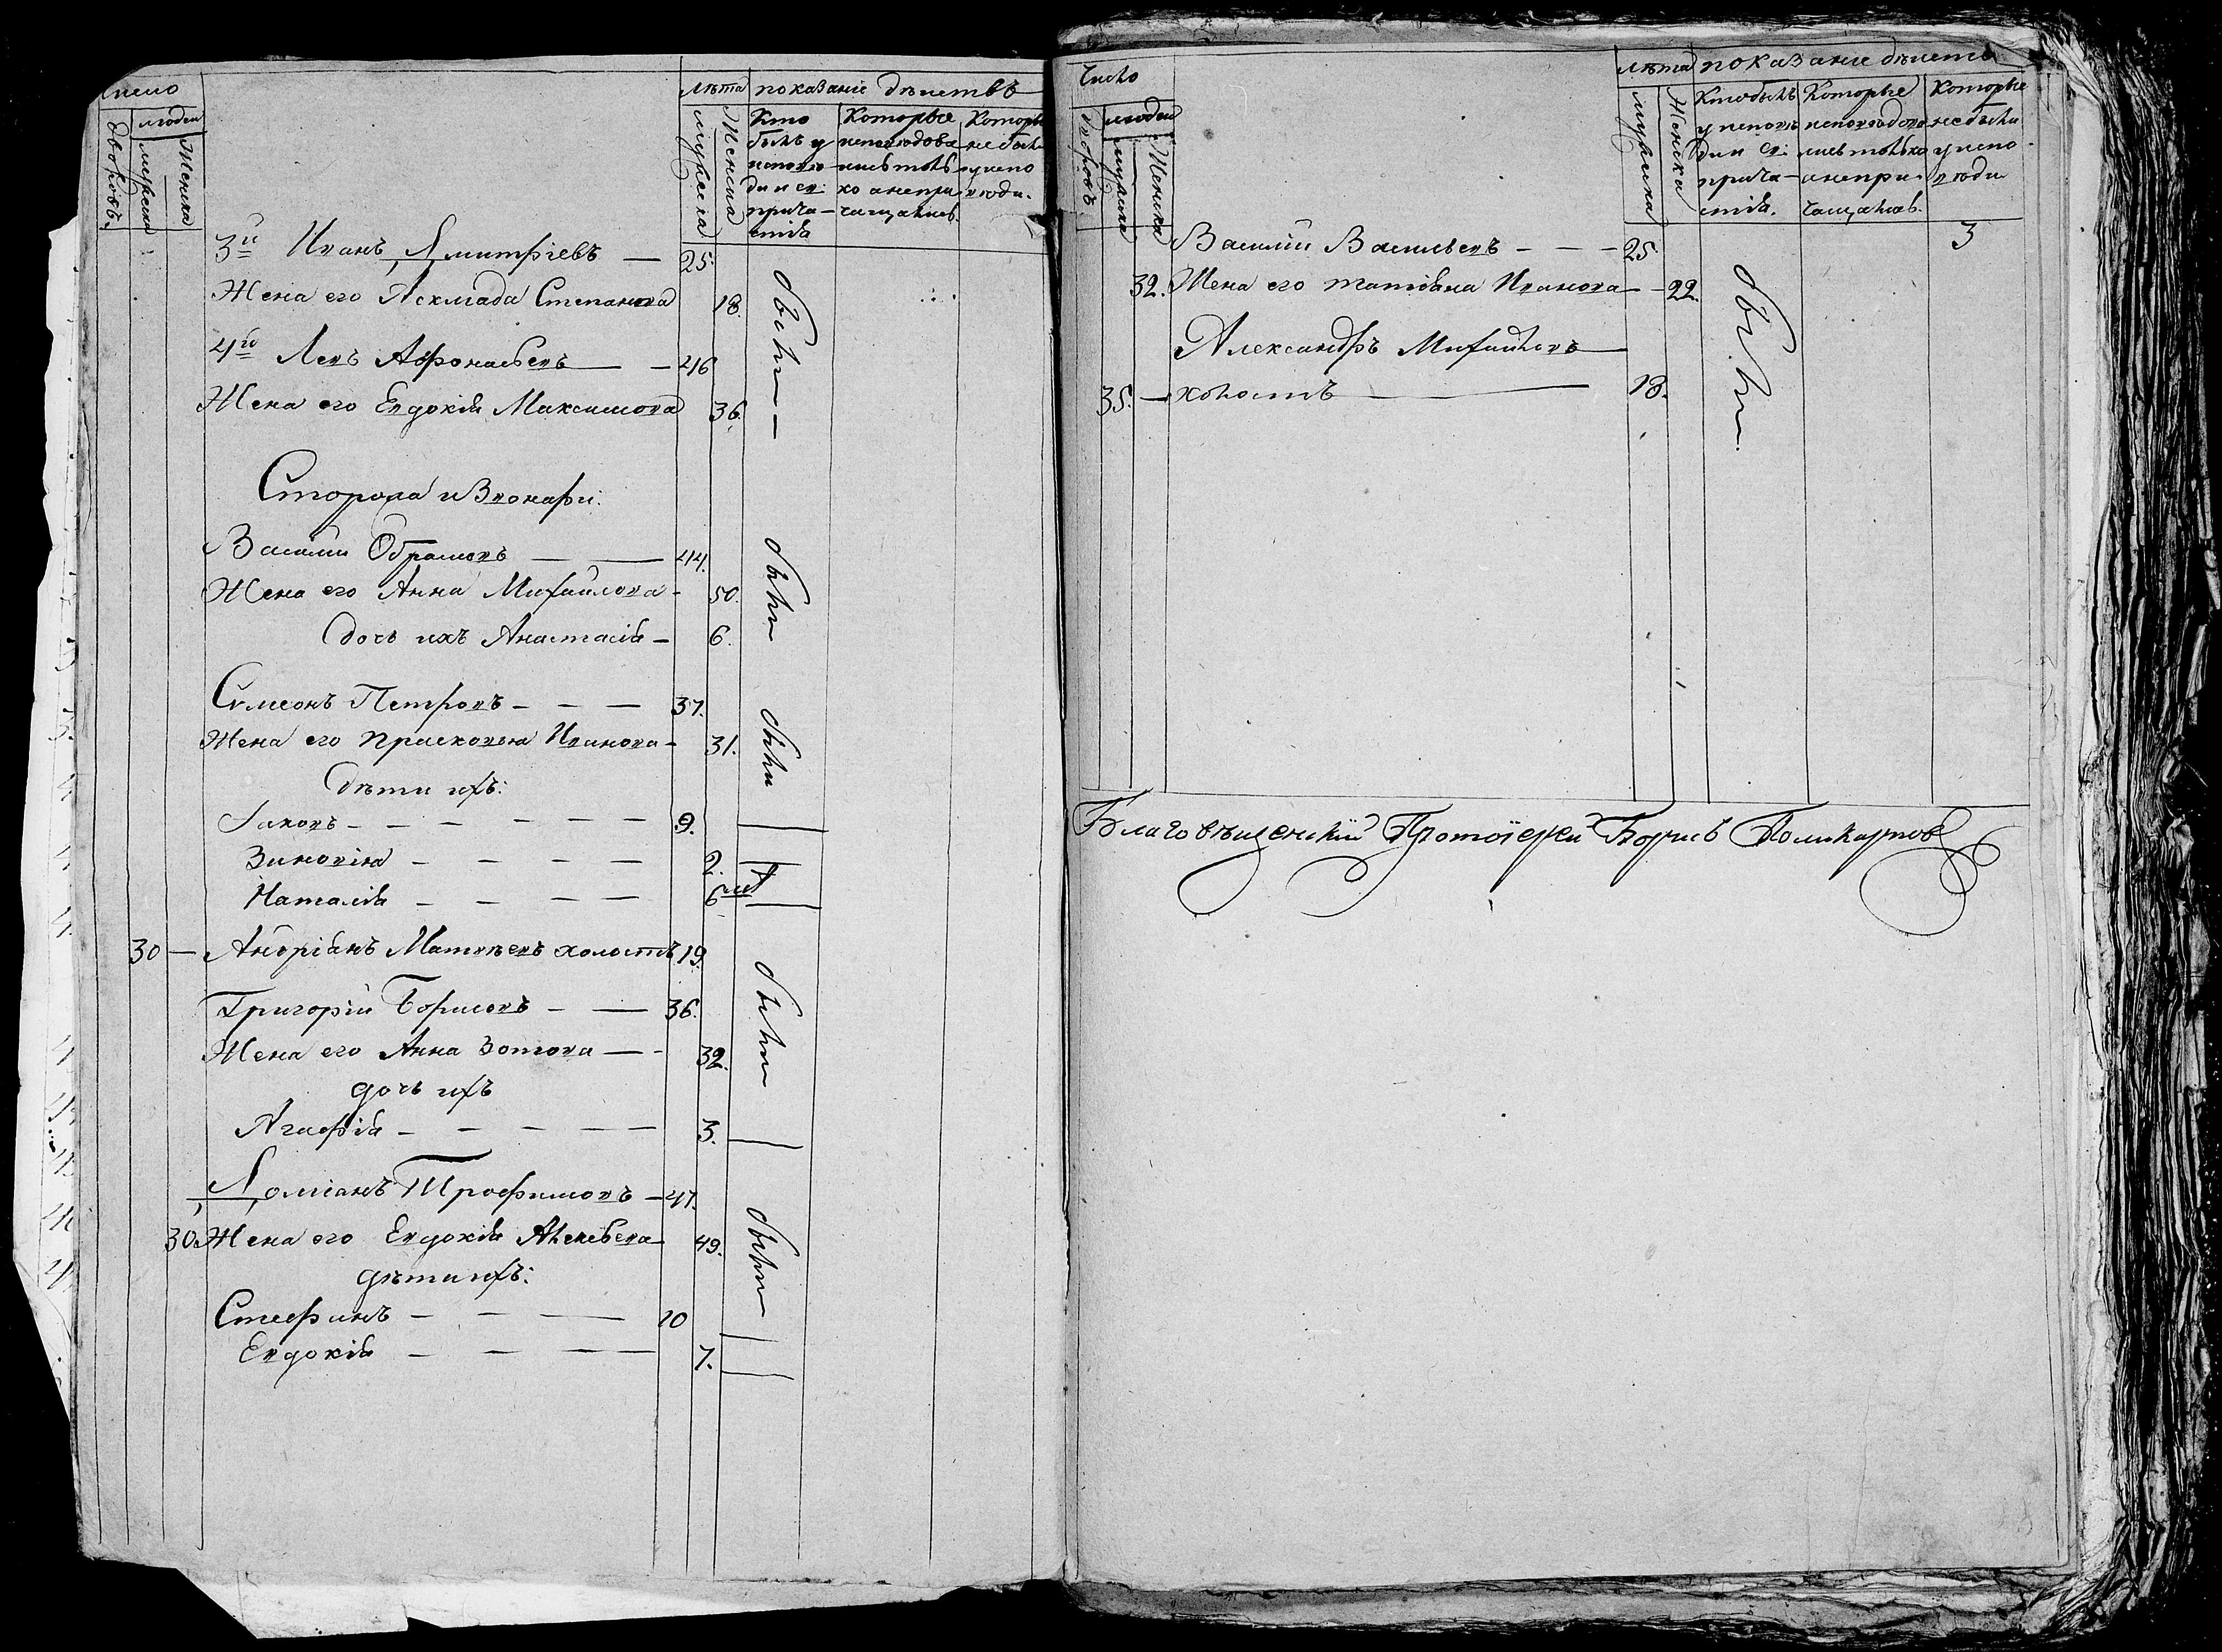 Число
лѣта показаніе дѣиствъ
дворовъ
людеи
мужеска
женска
мужеска
женска
Кто былъ у исповѣди и св: прича-стія
Которые исповѣдова-лись толь-ко а не при-чащались
Которые не были у испо-вѣди.
3й Иванъ Дмитріевъ — 25.
Жена его Степанова 18.
были
4й Левъ Афонасьевъ — 46
Жена его Евдокія Максимова 36.
Сторожа и Звонари:
Василіи Обрамовъ — 44.
Жена его Анна Михайлова - 50.
были
дочь ихъ Анастасія — 6.
Сѵмеонъ Петровъ — 37.
Жена его Прасковья Иванова - 31.
были
дѣти ихъ:
Іаковъ — 9.
Зиновія — 2.
Наталія — 6 м
30 — Андріанъ Матвѣевъ холостъ 19.
Григоріи Борисовъ — 36.
были
Жена его Анна Зотова — 32.
дочь ихъ
Агафія — 3.
Доміанъ Трофимовъ — 47.
30. Жена его Евдокія Алексѣева 49.
были
дѣти ихъ:
Стефанъ — 10
Евдокія — 7.
Число
лѣта показаніе дѣиствъ
дворовъ
людеи
мужеска
женска
мужеска
женска
Кто былъ у исповѣ-ди и св: прича-стія.
Которые исповѣдова-лись только а не при-чащались.
Которые не были у испо-вѣди
3
Василіи Васильевъ — 25
32. Жена его Татіана Иванова — 22.
были.
Александръ Михайловъ
35. — холостъ — 18.
Благовѣщенскій Протоіерей Борисъ Поликарповъ